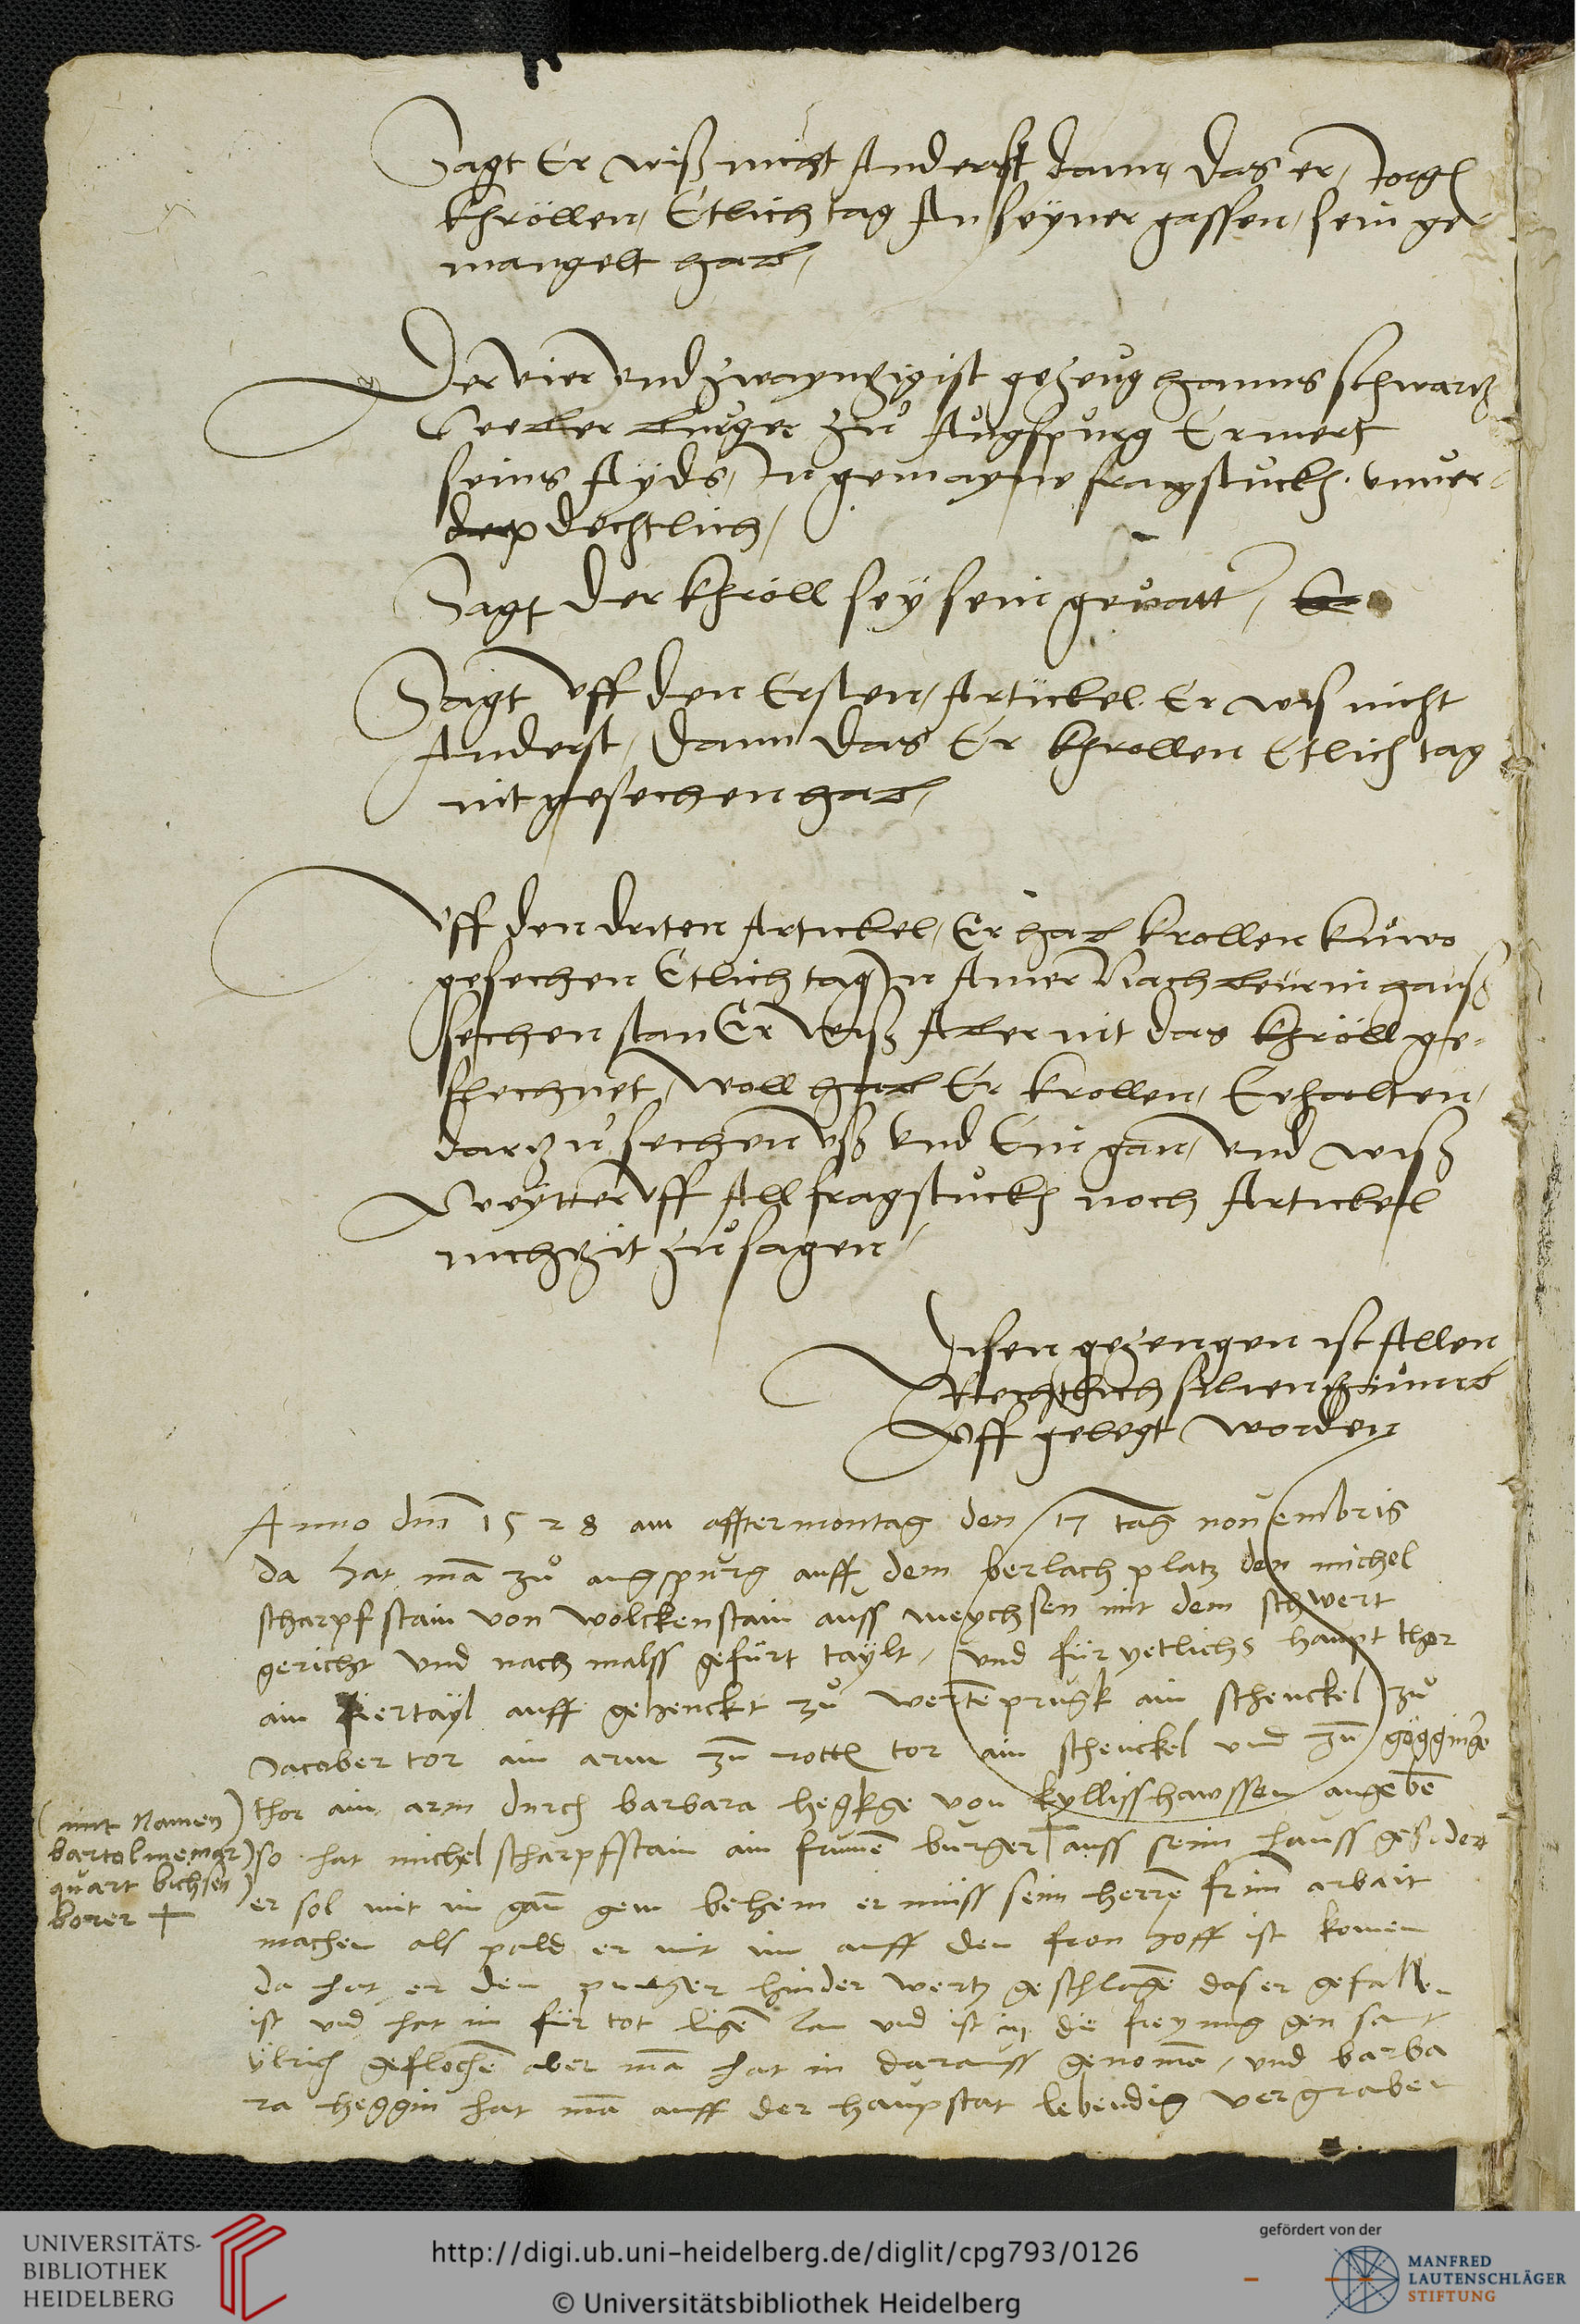 Sagt Er wiß nicht Anderst dann, das er, Jorg
Khröllen, Etlich tag An seyner gassen, sein ge-
mangelt hab,
Der vier und zwayntzigist gezeug hanns schwartz
Weber burger zů Augspurg Ernert
seins Ayds, In gemayne fragstuckh. unver-
dechtlich,
Sagt der Khröll sey sein gevatt,
Sagt uff den Ersten, Artickel. Er wis nicht
Anderst, dann das Er Khrollen Etlich tag
nit gesechen hab,
Uff den driten Artickel, Er hab Krollen
gesechen Etlich tag In Ainer Nachbeurin hauß
sechen stan Er wiß Aber nit das Khröll ge-
flechnet, woll hab Er Krollen,
dartzů sechen uß und Ein gan, und wiß
Weytter uff All fragstuckh noch Artickel
nichtzit zů sagen,
Disen gezeugen ist Allen
Rechtlich
Uff gelegt worden
Anno dm 1528 am afftermontag den 17 tag novembris
da hat ma zů augspurg auff dem berlach platz den michel
scharpfstain von wolckenstain auss meychsen mit dem schwert
gericht und nach malss gefiirt taylt, und für yetlichs haupt thor
ain fiertayl auff gehenckt zů wertePrugk ain schenckel zů
Jacober tor ain arm zu rotten tor ain schenckel und zu gögginge
thor ain arm durch barbara hegkge von kyllisshawssen angebe
(mit Namen)
bartolmemar)
quart bichsen)
borer +
so hat michel scharpfstain ain frume burger + auss seim hauss gefidert
er sol mit im gan gem behem er müss seim herre arbait
machen als pald er mit im auff den fron hoff ist komen
da hat er den purger hinder wertz geschlage das er gefallen
ist und hat in für tot lige lan und ist in die freyung gen sant
ülrich gefloche aber ma hat in darauss genome, und barba
ra heggin hat ma auff der haupstat lebendig vergraben
UNIVERSITÄTS-
BIBLIOTHEK
HEIDELBERG
http://digi.ub.uni-heidelberg.de/diglit/cpg793/0126
© Universitätsbibliothek Heidelberg
gefördert von der
MANFRED
LAUTENSCHLÄGER
STIFTUNG